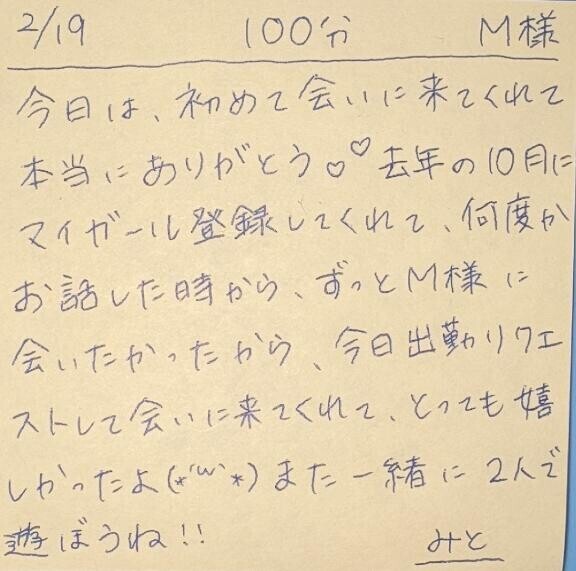 2/19 100分 M様
今日は、初めて会いに来てくれて
本当にありがとう♡♡去年の10月に
マイガール登録してくれて、何度か
お話した時から、ずっとM様に
会いたかったから、今日出勤リクエ
ストして会いに来てくれて、とっても嬉
しかったよ(*´ω`*)また一緒に2人で
遊ぼうね!!
みと